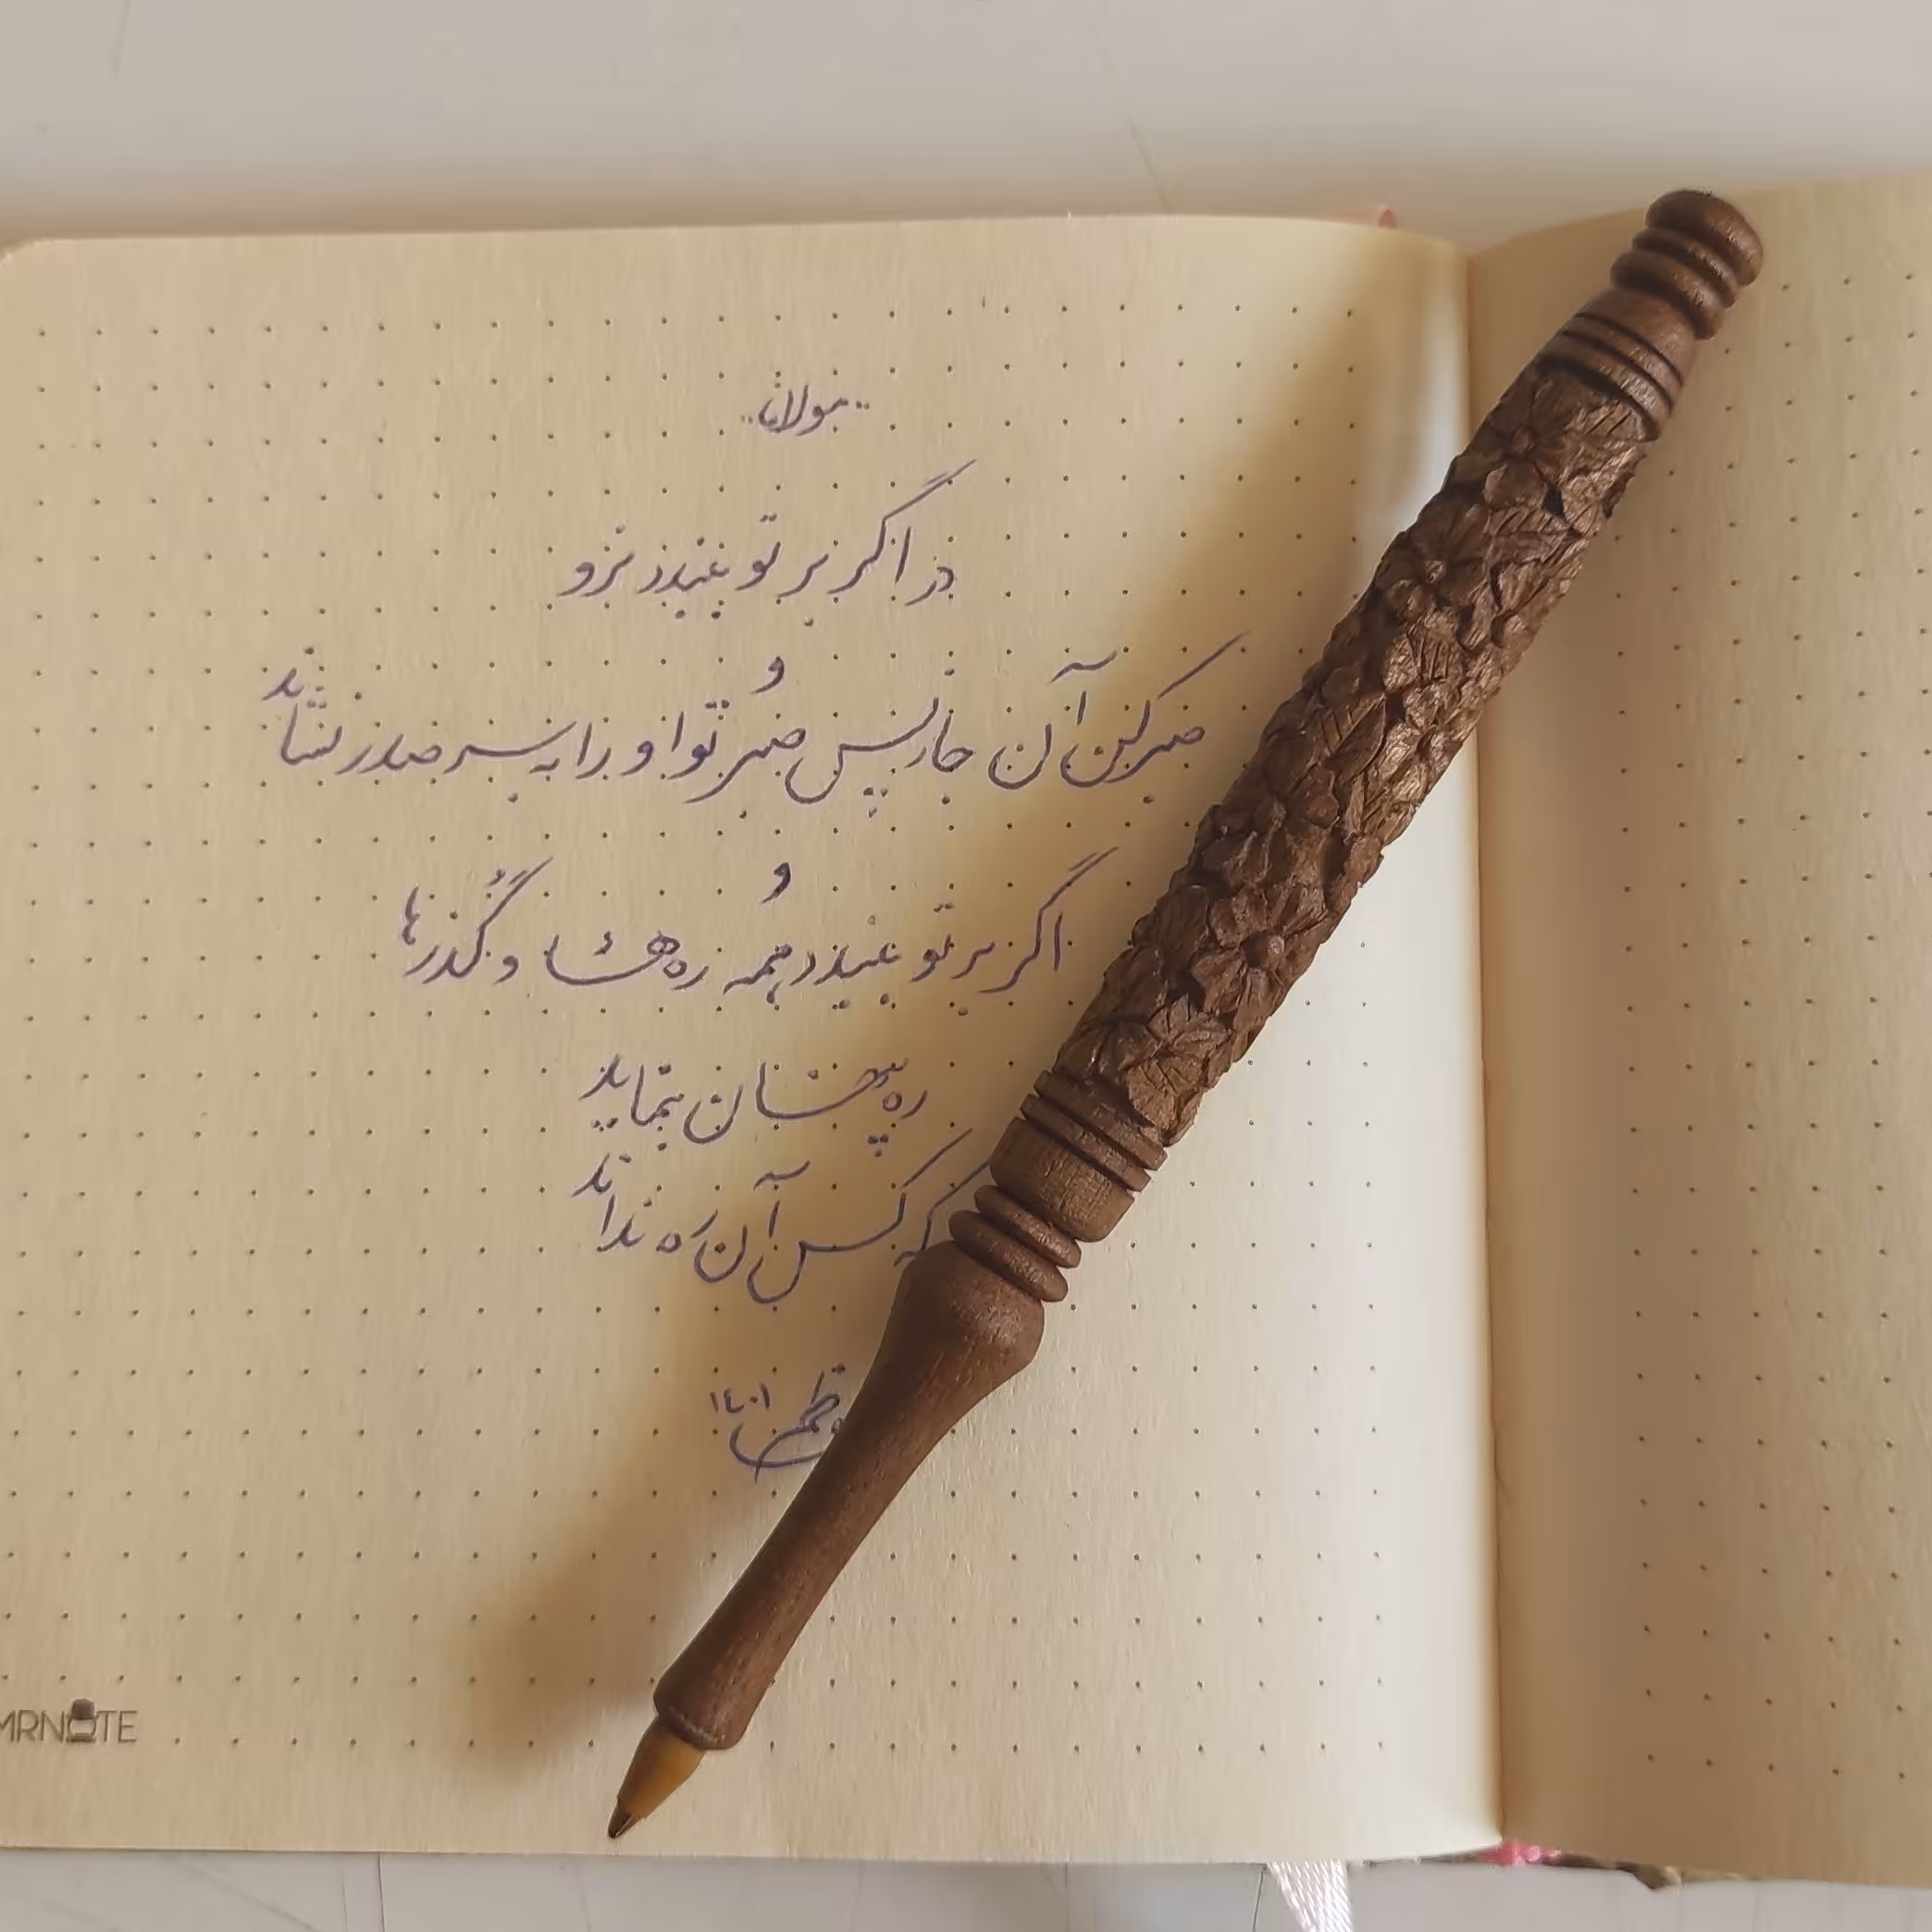 ..مولانا..
در اگر بر تو ببندد نرو
و
صبر کن آن جا ز پس صبر تو او را به سر صدر نشاند
و
اگر بر تو ببندد همه ره‌ها و گذرها
ره پنهان بنماید
که کس آن ره نداند
۱۴۰۱
MRNOTE